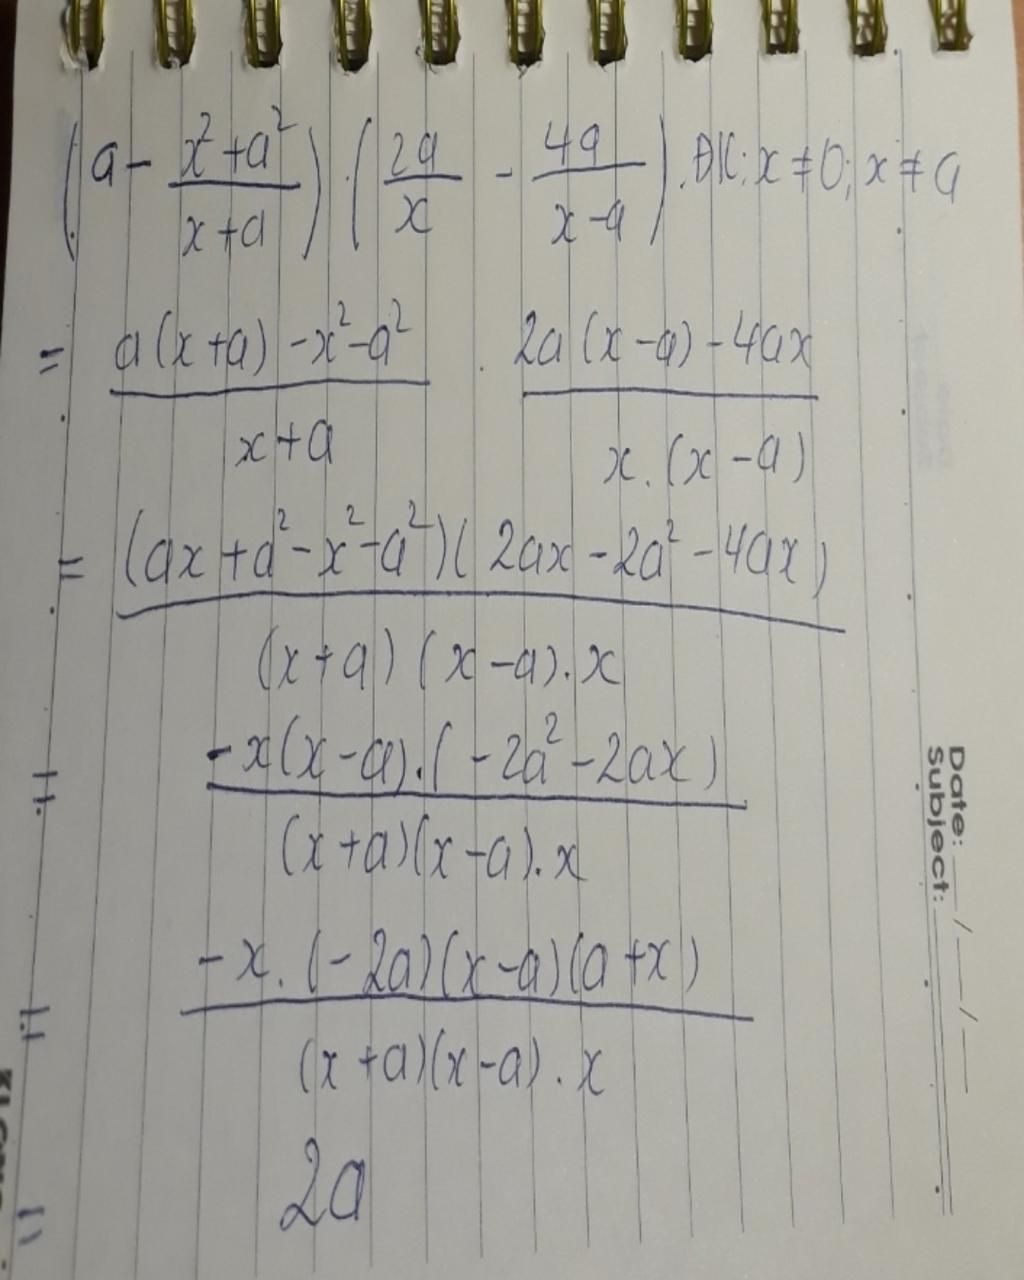 (a - \frac{x^2+a^2}{x+a}) . (\frac{2a}{x} - \frac{4a}{x-a}). ĐK: x ≠ 0; x ≠ a
= \frac{a(x+a) - x^2 - a^2}{x+a} . \frac{2a(x-a) - 4ax}{x.(x-a)}
= \frac{(ax + a^2 - x^2 - a^2)(2ax - 2a^2 - 4ax)}{(x+a)(x-a).x}
= \frac{-x(x-a).(-2a^2 - 2ax)}{(x+a)(x-a).x}
= \frac{-x.(-2a)(x-a)(a+x)}{(x+a)(x-a).x}
= 2a
Date: / /
Subject: